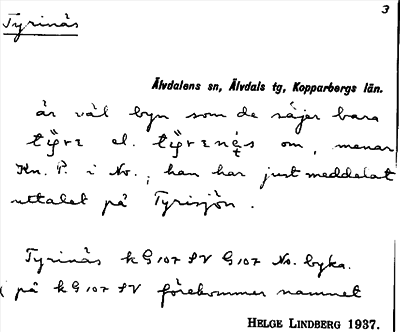 3
Tyrinäs
Älvdalens sn, Älvdals tg, Kopparbergs län.
är väl byn som de säjer bara
el. om, menar
Kn. P. i No., han har just meddelat
uttalet på Tyrisjön.
Tyrinäs k G 107 SV G 107 No. byka.
på k G 107 SV förekommer namnet
HELGE LINDBERG 1937.